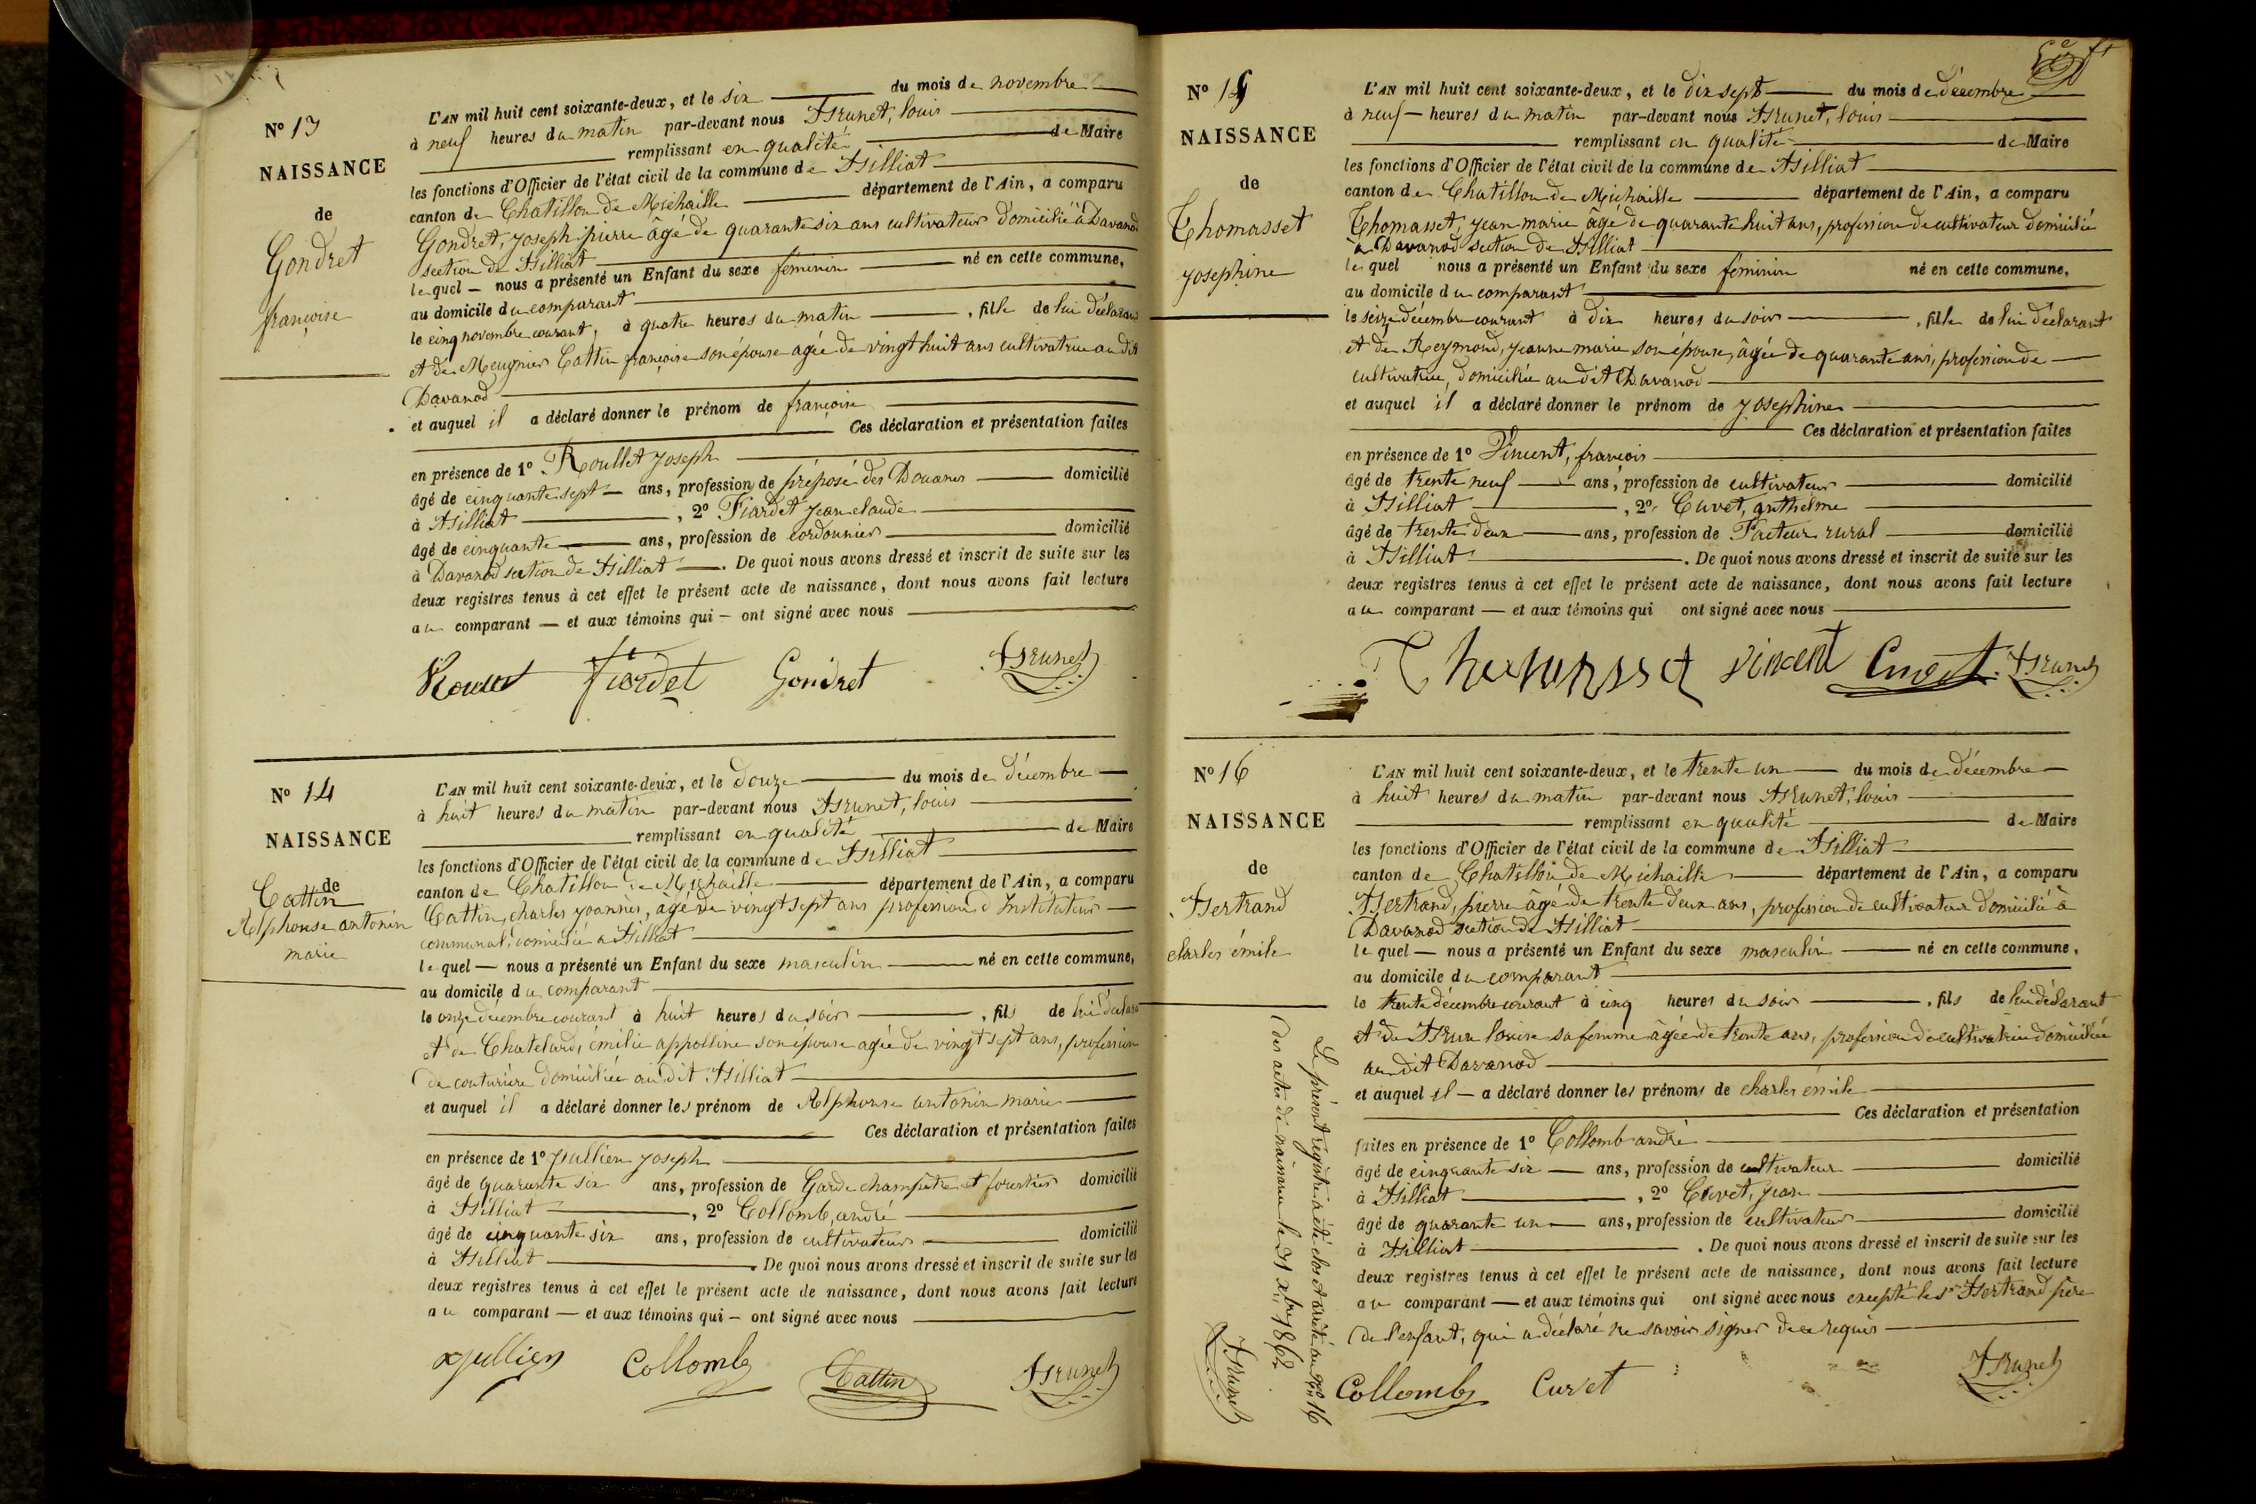 N° 13
NAISSANCE
de
Gondret
françoise
L'AN mil huit cent soixante-deux, et le six du mois de novembre
à neuf heures du matin par-devant nous Brunet, louis
remplissant en qualité de Maire
les fonctions d'Officier de l'état civil de la commune de Billiat
canton de Chatillon de Michaille département de l'Ain, a comparu
Gondret, joseph pierre âgé de quarante six ans cultivateur domicilié à Davanod
section de Billiat
lequel — nous a présenté un Enfant du sexe féminin né en cette commune,
au domicile du comparant
le cinq novembre courant, à quatre heures du matin , fille de lui déclarant
et de Meugnier Cattin françoise son épouse agée de vingt huit ans cultivatrice au dit
Davanod
et auquel il a déclaré donner le prénom de françoise
Ces déclaration et présentation faites
en présence de 1° Roullet joseph
âgé de cinquante sept ans, profession de préposé des Douanes domicilié
à Billiat , 2° Fiardet jean claude
âgé de cinquante ans, profession de cordonnier domicilié
à Davanod section de Billiat . De quoi nous avons dressé et inscrit de suite sur les
deux registres tenus à cet effet le présent acte de naissance, dont nous avons fait lecture
au comparant — et aux témoins qui – ont signé avec nous
Roullet fiardet Gondret Brunet
N° 14
NAISSANCE
de
Cattin
Alphonse antonin
marie
L'AN mil huit cent soixante-deux, et le douze du mois de décembre
à huit heures du matin par-devant nous Brunet, louis
remplissant en qualité de Maire
les fonctions d'Officier de l'état civil de la commune de Billiat
canton de Chatillon de Michaille département de l'Ain, a comparu
Cattin, charles joannès, âgé de vingt sept ans profession d'Instituteur
communal, domicilié à Billiat
lequel — nous a présenté un Enfant du sexe masculin né en cette commune,
au domicile du comparant
le onze décembre courant à huit heures du soir , fils de lui déclarant
et de Chatelard, émilie appolline son épouse agée de vingt sept ans, profession
de couturière domiciliée au dit Billiat
et auquel il a déclaré donner les prénom de Alphonse antonin marie
Ces déclaration et présentation faites
en présence de 1° jullien joseph
âgé de quarante six ans, profession de Garde champêtre et forestier domicilié
à Billiat , 2° Collomb, andré
âgé de cinquante six ans, profession de cultivateur domicilié
à Billiat . De quoi nous avons dressé et inscrit de suite sur les
deux registres tenus à cet effet le présent acte de naissance, dont nous avons fait lecture
au comparant — et aux témoins qui – ont signé avec nous
jullien Collomb Cattin Brunet
N° 15
NAISSANCE
de
Thomasset
josephine
L'AN mil huit cent soixante-deux, et le dix sept du mois de décembre
à neuf heures du matin par-devant nous Brunet, louis
remplissant en qualité de Maire
les fonctions d'Officier de l'état civil de la commune de Billiat
canton de Chatillon de Michaille département de l'Ain, a comparu
Thomasset, jean marie âgé de quarante huit ans, profession de cultivateur domicilié
à Davanod section de Billiat
lequel nous a présenté un Enfant du sexe féminin né en cette commune,
au domicile du comparant
le seize décembre courant à dix heures du soir , fille de lui déclarant
et de Reymond, jeanne marie son épouse, âgée de quarante ans, profession de
cultivatrice, domiciliée au dit Davanod
et auquel il a déclaré donner le prénom de josephine
Ces déclaration et présentation faites
en présence de 1° Vincent, françois
âgé de trente neuf ans, profession de cultivateur domicilié
à Billiat , 2° Cuvet, anthelme
âgé de trente deux ans, profession de Facteur rural domicilié
à Billiat . De quoi nous avons dressé et inscrit de suite sur les
deux registres tenus à cet effet le présent acte de naissance, dont nous avons fait lecture
au comparant — et aux témoins qui ont signé avec nous
Thomasset vincent Cuvet Brunet
N° 16
NAISSANCE
de
Bertrand
charles émile
L'AN mil huit cent soixante-deux, et le trente un du mois de décembre
à huit heures du matin par-devant nous Brunet, louis
remplissant en qualité de Maire
les fonctions d'Officier de l'état civil de la commune de Billiat
canton de Chatillon de Michaille département de l'Ain, a comparu
Bertrand, pierre âgé de trente deux ans, profession de cultivateur domicilié à
Davanod section de Billiat
lequel — nous a présenté un Enfant du sexe masculin né en cette commune,
au domicile du comparant
le trente décembre courant à cinq heures du soir , fils de lui déclarant
et de Brun louise sa femme âgée de trente ans, profession de cultivatrice domiciliée
au dit Davanod
et auquel il — a déclaré donner les prénoms de charles émile
Ces déclaration et présentation
faites en présence de 1° Collomb andré
âgé de cinquante six ans, profession de cultivateur domicilié
à Billiat , 2° Cuvet, jean
âgé de quarante un ans, profession de cultivateur domicilié
à Billiat . De quoi nous avons dressé et inscrit de suite sur les
deux registres tenus à cet effet le présent acte de naissance, dont nous avons fait lecture
au comparant — et aux témoins qui ont signé avec nous excepté le sr Bertrand père
de l'enfant, qui a déclaré ne savoir signer de ce requis
Collomb Cuvet Brunet
Le présent registre a été clos et arrêté au N° 16
des actes de naissance le 31 xbre 1862
Brunet